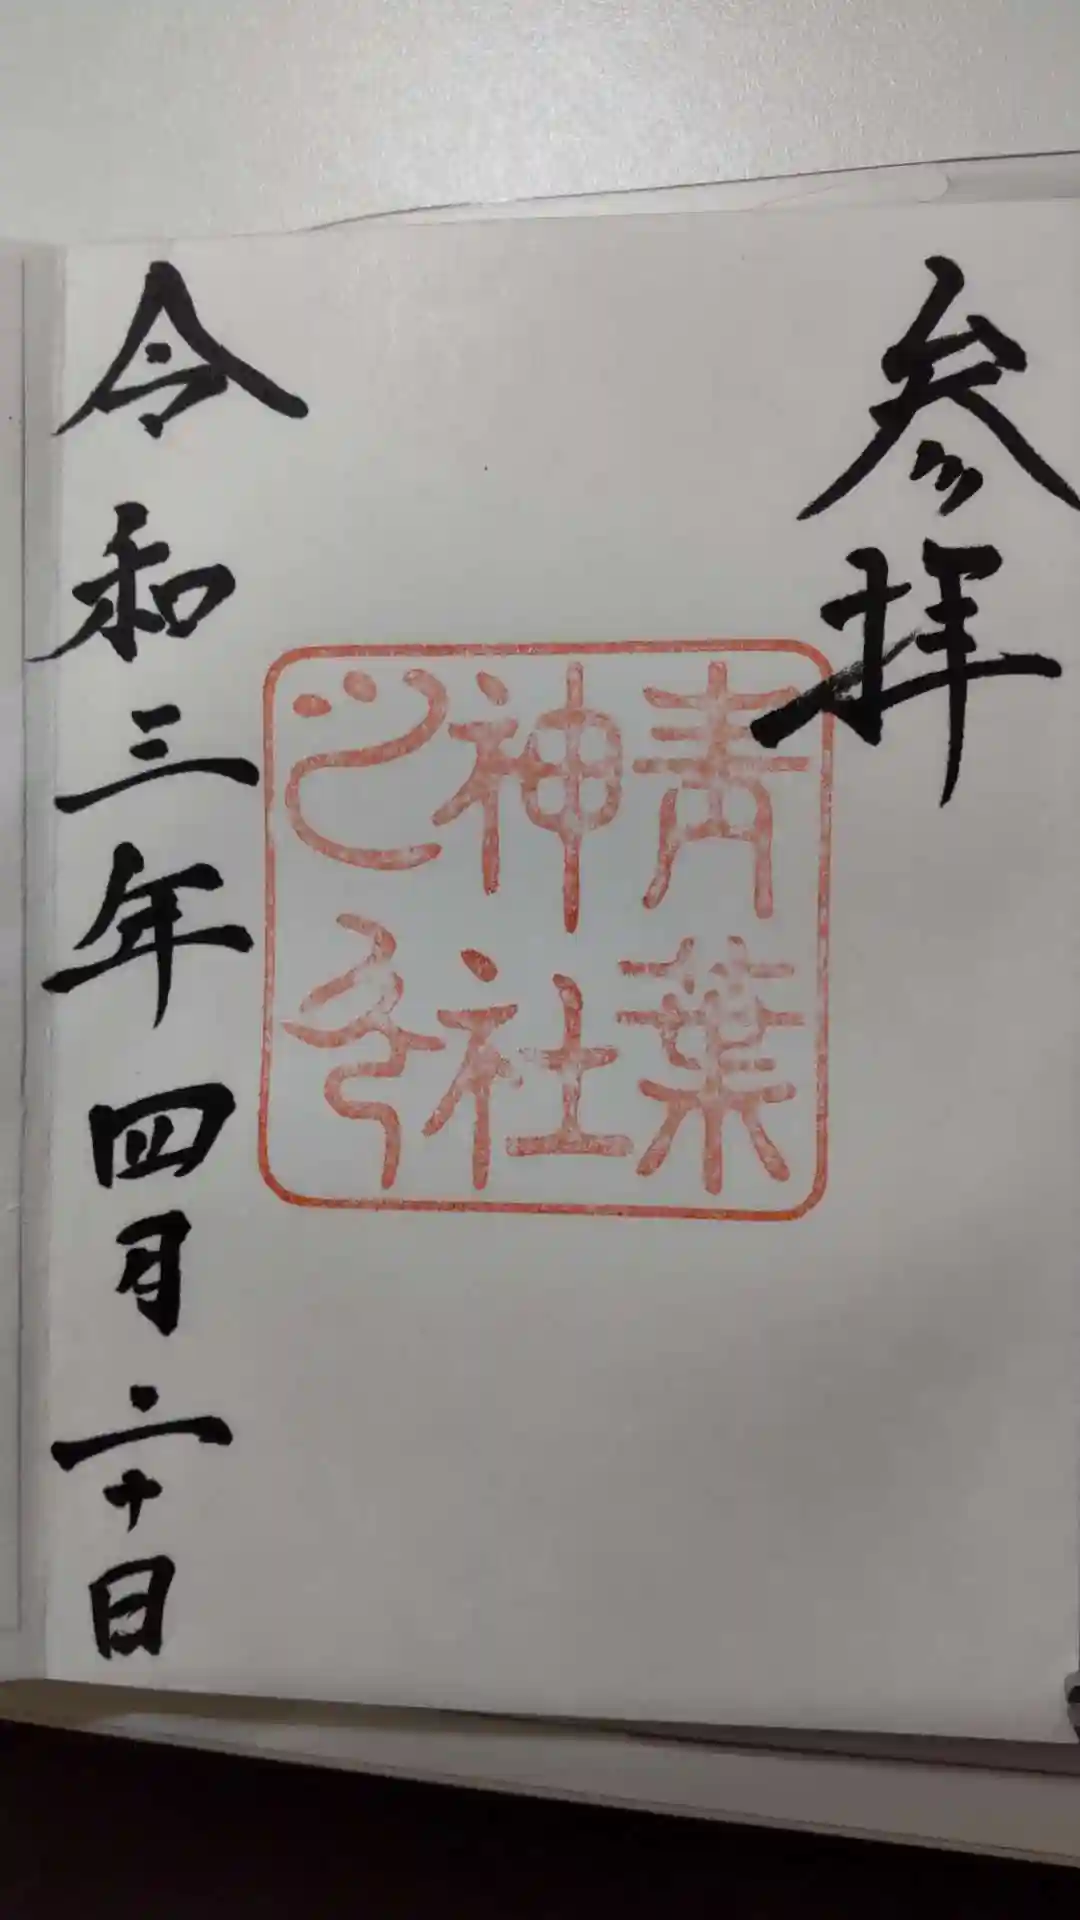 参拝
青葉
神社
之印
令和三年四月二十日